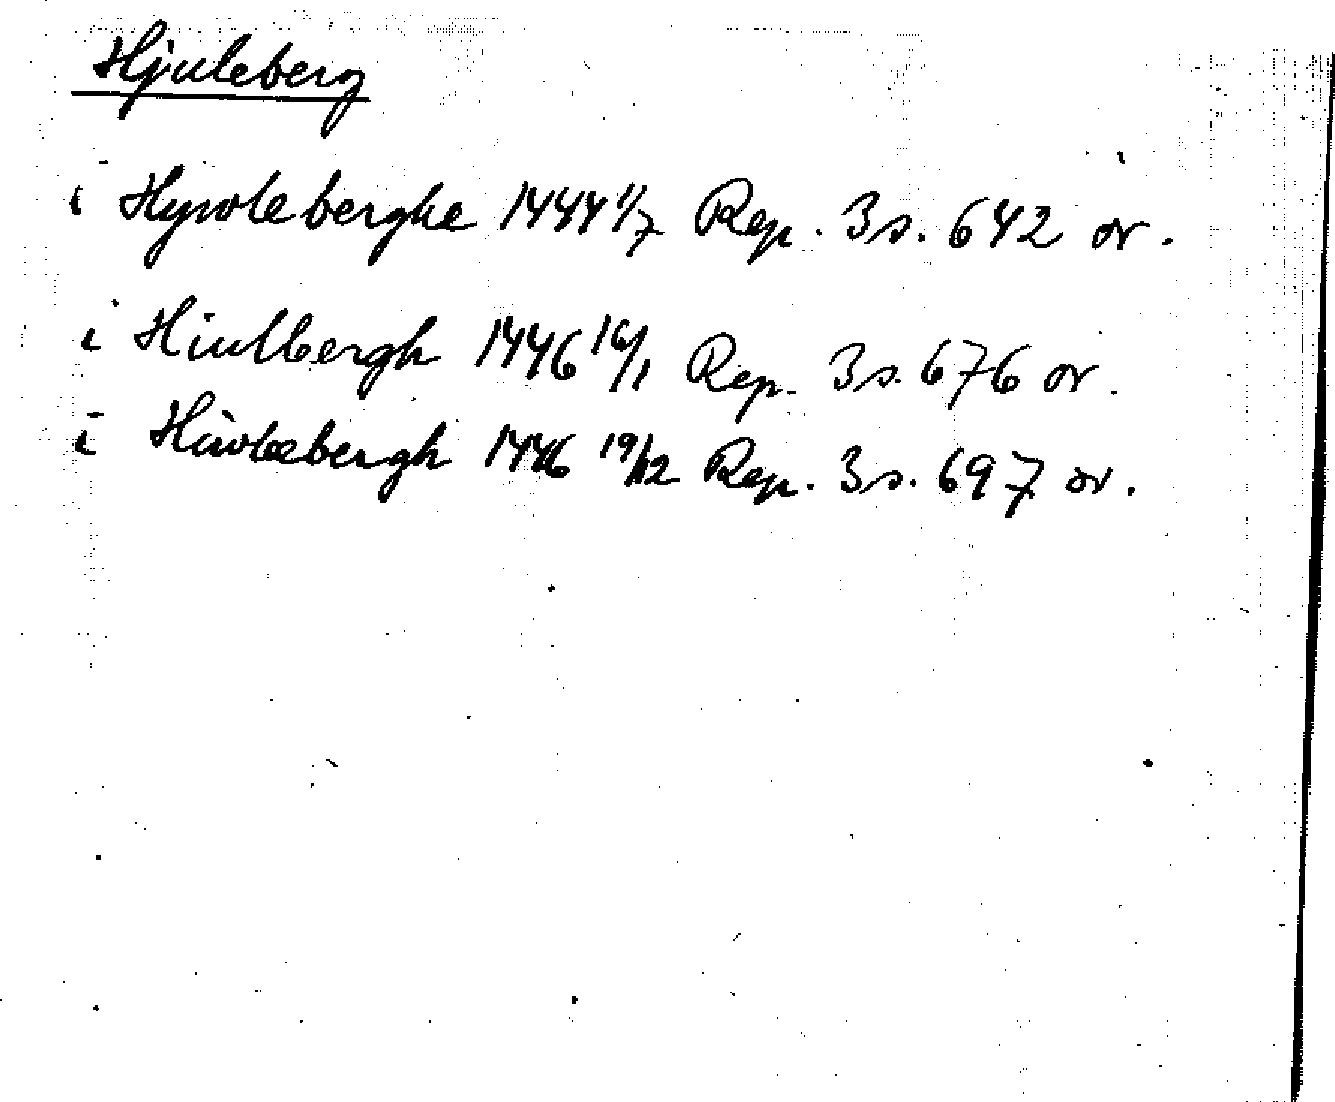 Hjuleberg
i Hywleberghe 1444 1/7 Rep. 3 s. 642 or.
i Hiulbergh 1446 16/1 Rep. 3 s. 676 or.
i Hiwlæbergh 1446 19/12 Rep. 3 s. 697 or.